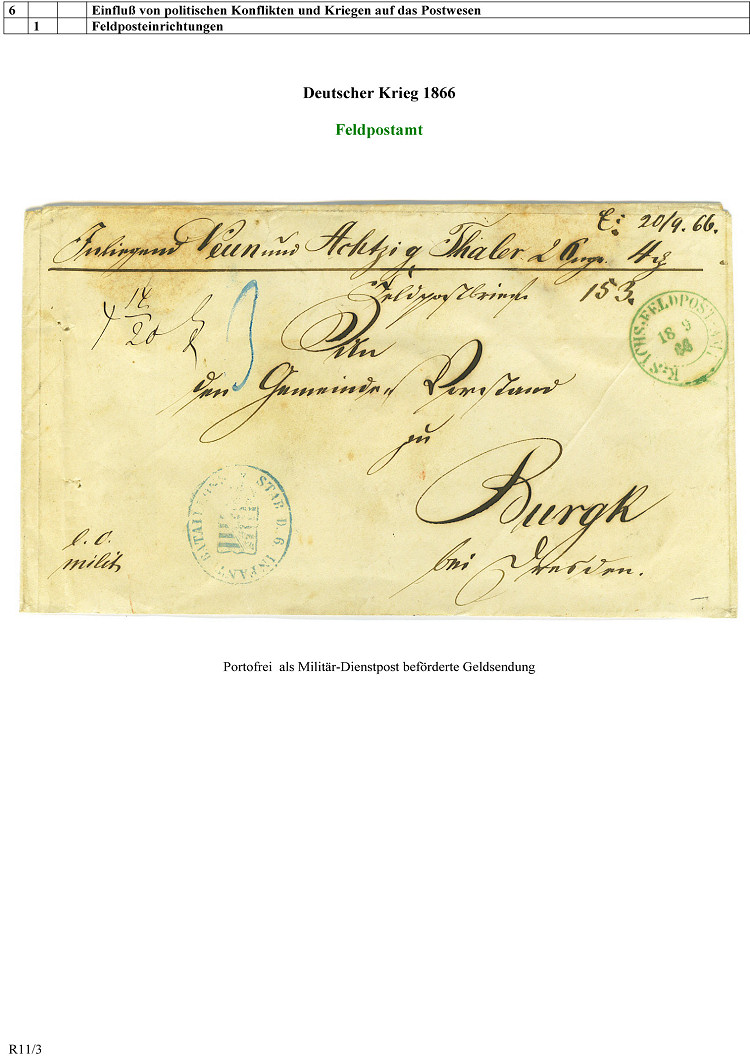 6 Einfluß von politischen Konflikten und Kriegen auf das Postwesen
1 Feldposteinrichtungen
Deutscher Krieg 1866
Feldpostamt
E: 20/9. 66.
Inliegend Neun und Achtzig Thaler 26 ngr. 4 ₰
Feldpostbrief 153.
14
20
3
An
den Gemeinde-Vorstand
zu
Burgk
bei Dresden.
K. SÄCHS. FELDPOST-AMT
18 9
66
STAB D. 6 INFANT BATAILLONS
milit
Portofrei als Militär-Dienstpost beförderte Geldsendung
R11/3